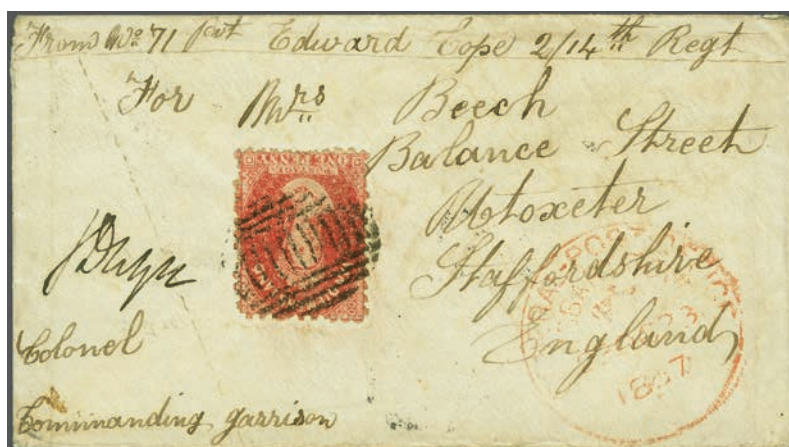 From No 71 Pvt Edward Cope 2/14th Regt
For Mrs Beech
Balance Street
Utoxeter
Staffordshire
England
Colonel
Commanding garrison
ONE PENNY
POSTAGE
1867